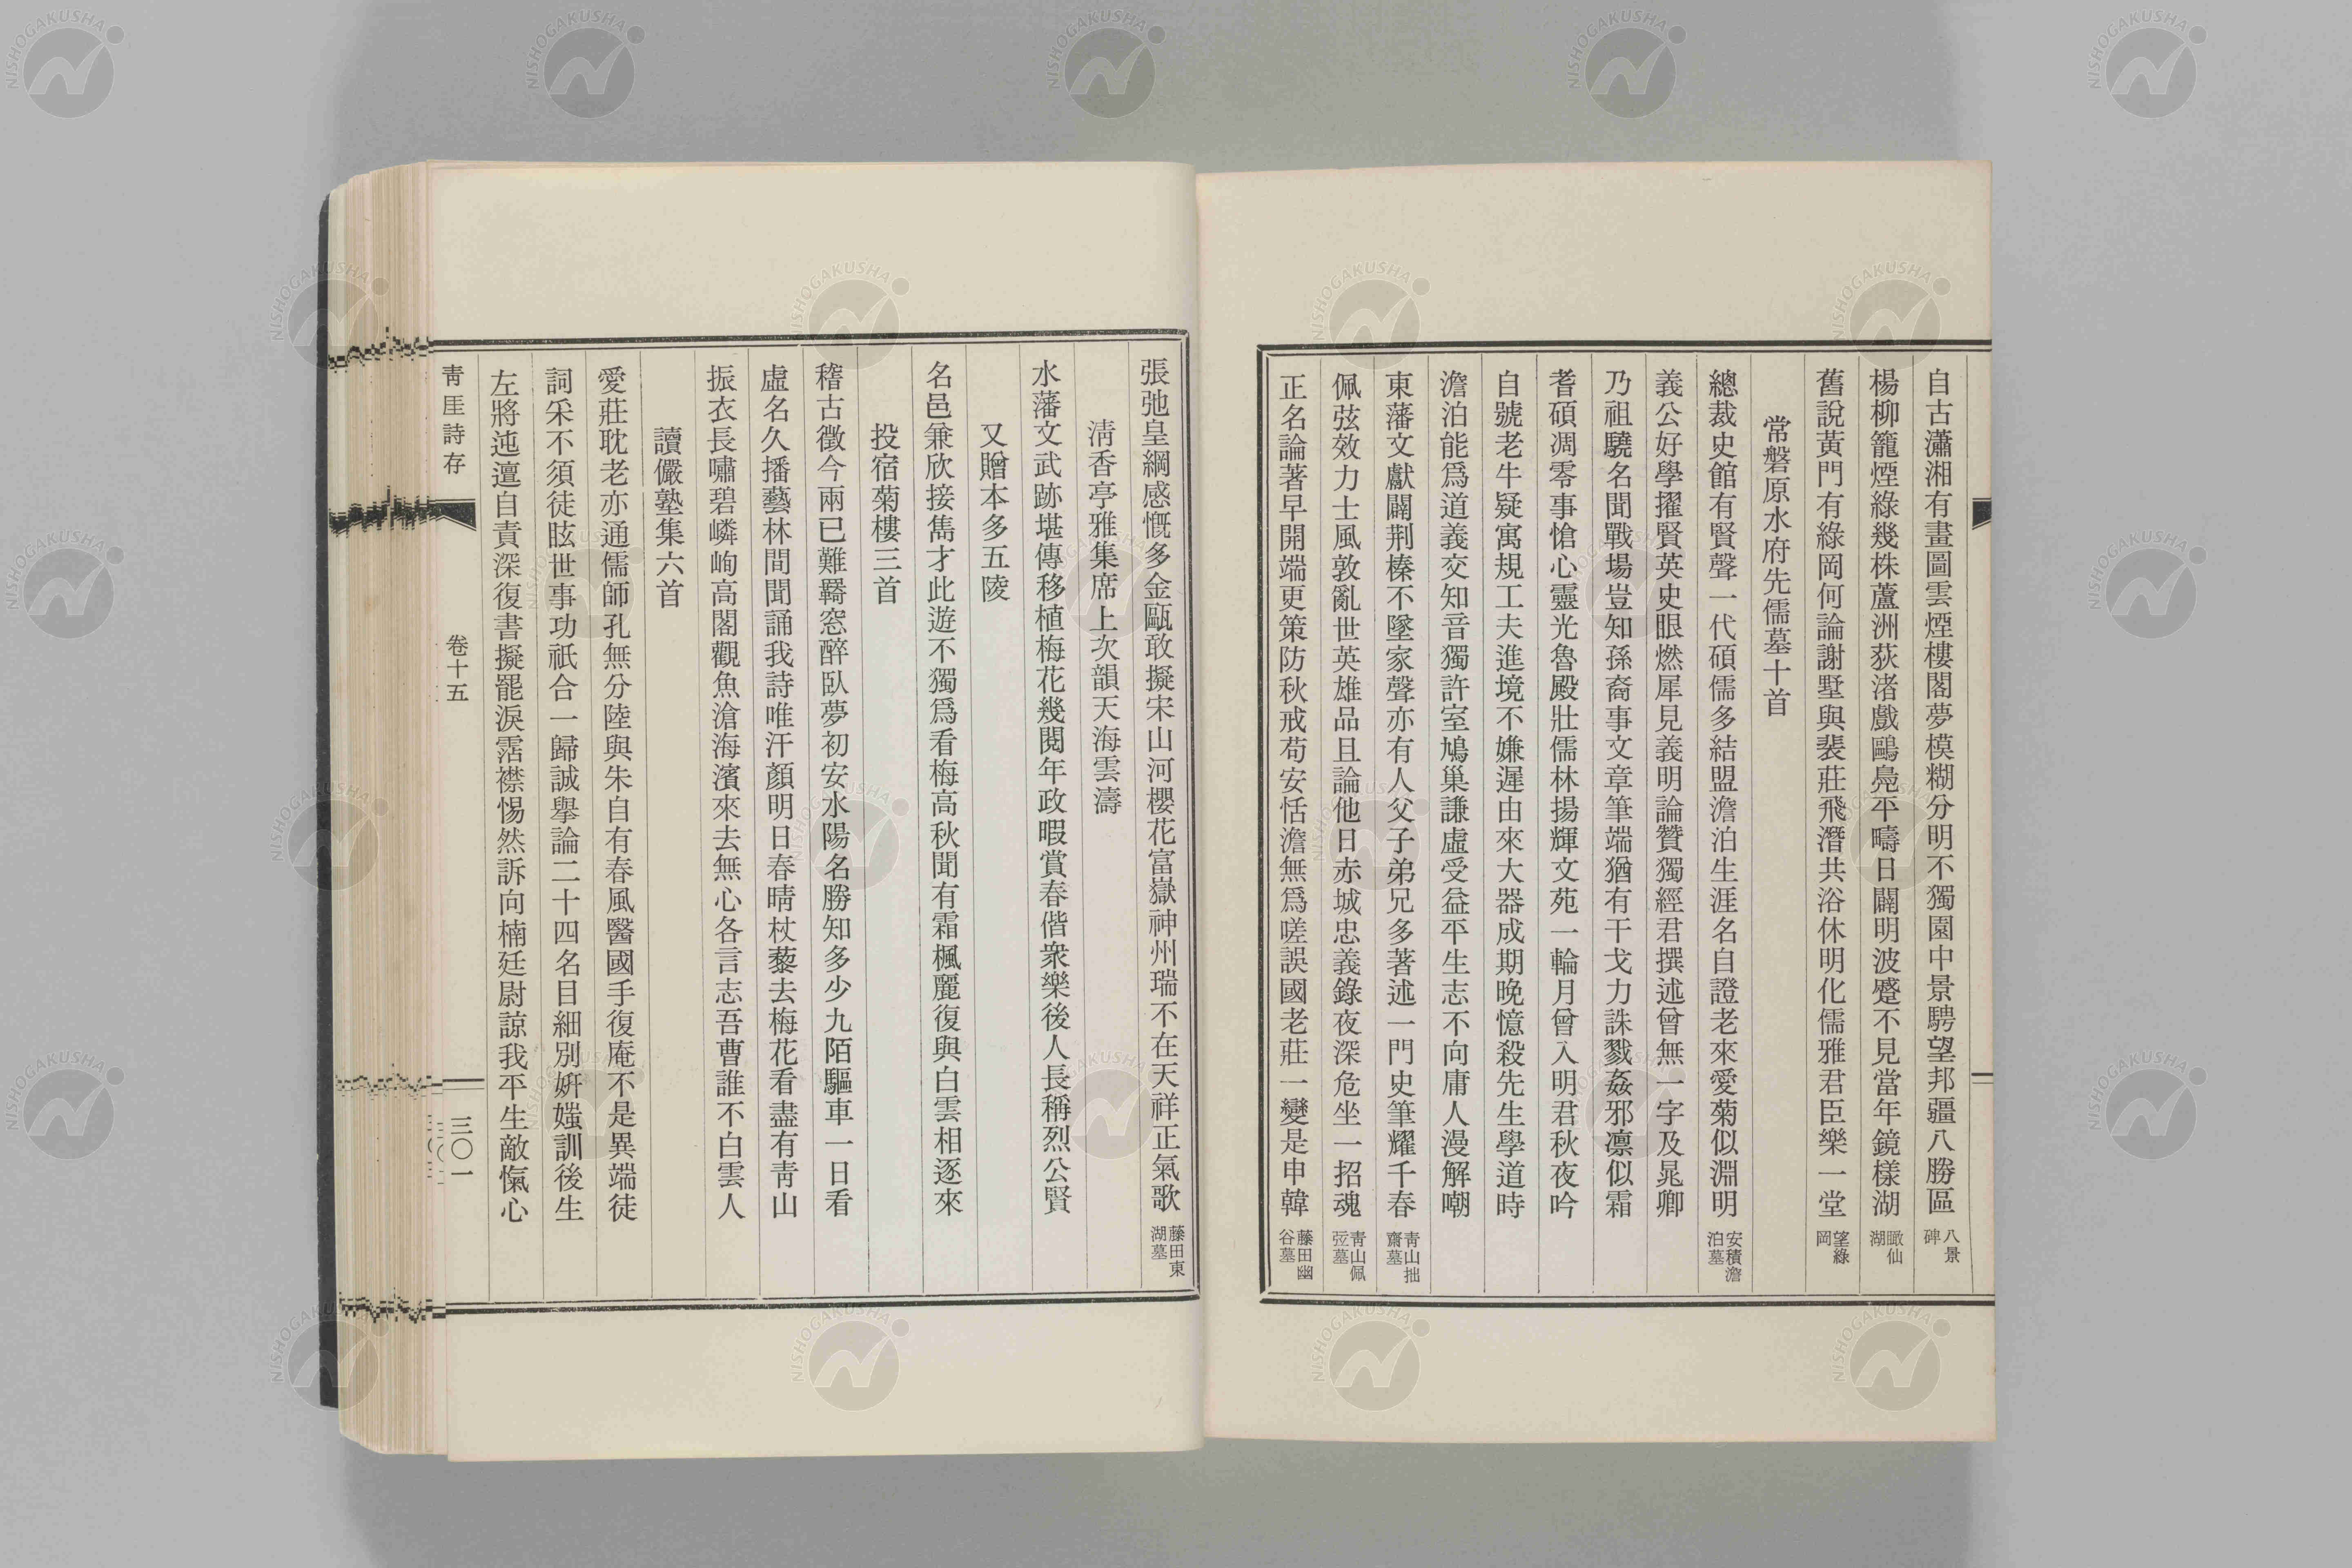 自古瀟湘有畫圖雲煙樓閣夢模糊分明不獨園中景騁望邦疆八勝區八景碑
楊柳籠煙綠幾株蘆洲荻渚戲鷗鳧平疇日闢明波蹙不見當年鏡樣湖瞰仙湖
舊說黃門有綠岡何論謝墅與裴莊飛潛共浴休明化儒雅君臣樂一堂望綠岡
常磐原水府先儒墓十首
總裁史館有賢聲一代碩儒多結盟澹泊生涯名自證老來愛菊似淵明安積澹泊墓
義公好學擢賢英史眼燃犀見義明論贊獨經君撰述曾無一字及晁卿
乃祖驍名聞戰場豈知孫裔事文章筆端猶有干戈力誅戮姦邪凛似霜
耆碩凋零事愴心靈光魯殿壯儒林揚輝文苑一輪月曾入明君秋夜吟
自號老牛疑寓規工夫進境不嫌遲由來大器成期晚憶殺先生學道時
澹泊能爲道義交知音獨許室鳩巢謙虛受益平生志不向庸人漫解嘲
東藩文獻闢荆榛不墜家聲亦有人父子弟兄多著述一門史筆耀千春青山拙齋墓
佩弦效力士風敦亂世英雄品且論他日赤城忠義錄夜深危坐一招魂青山佩弦墓
正名論著早開端更策防秋戒苟安恬澹無爲嗟誤國老莊一變是申韓藤田幽谷墓
張弛皇綱感慨多金甌敢擬宋山河櫻花富嶽神州瑞不在天祥正氣歌藤田東湖墓
淸香亭雅集席上次韻天海雲濤
水藩文武跡堪傳移植梅花幾閱年政暇賞春偕衆樂後人長稱烈公賢
又贈本多五陵
名邑兼欣接雋才此遊不獨爲看梅高秋聞有霜楓麗復與白雲相逐來
投宿菊樓三首
稽古徵今兩已難羇窓醉臥夢初安水陽名勝知多少九陌驅車一日看
虛名久播藝林間聞誦我詩唯汗顏明日春晴杖藜去梅花看盡有靑山
振衣長嘯碧嶙峋高閣觀魚滄海濱來去無心各言志吾曹誰不白雲人
讀儼塾集六首
愛莊耽老亦通儒師孔無分陸與朱自有春風醫國手復庵不是異端徒
詞采不須徒眩世事功祇合一歸誠擧論二十四名目細別姸媸訓後生
左將迍邅自責深復書擬罷淚霑襟惕然訴向楠廷尉諒我平生敵愾心
靑厓詩存
卷十五
三〇一